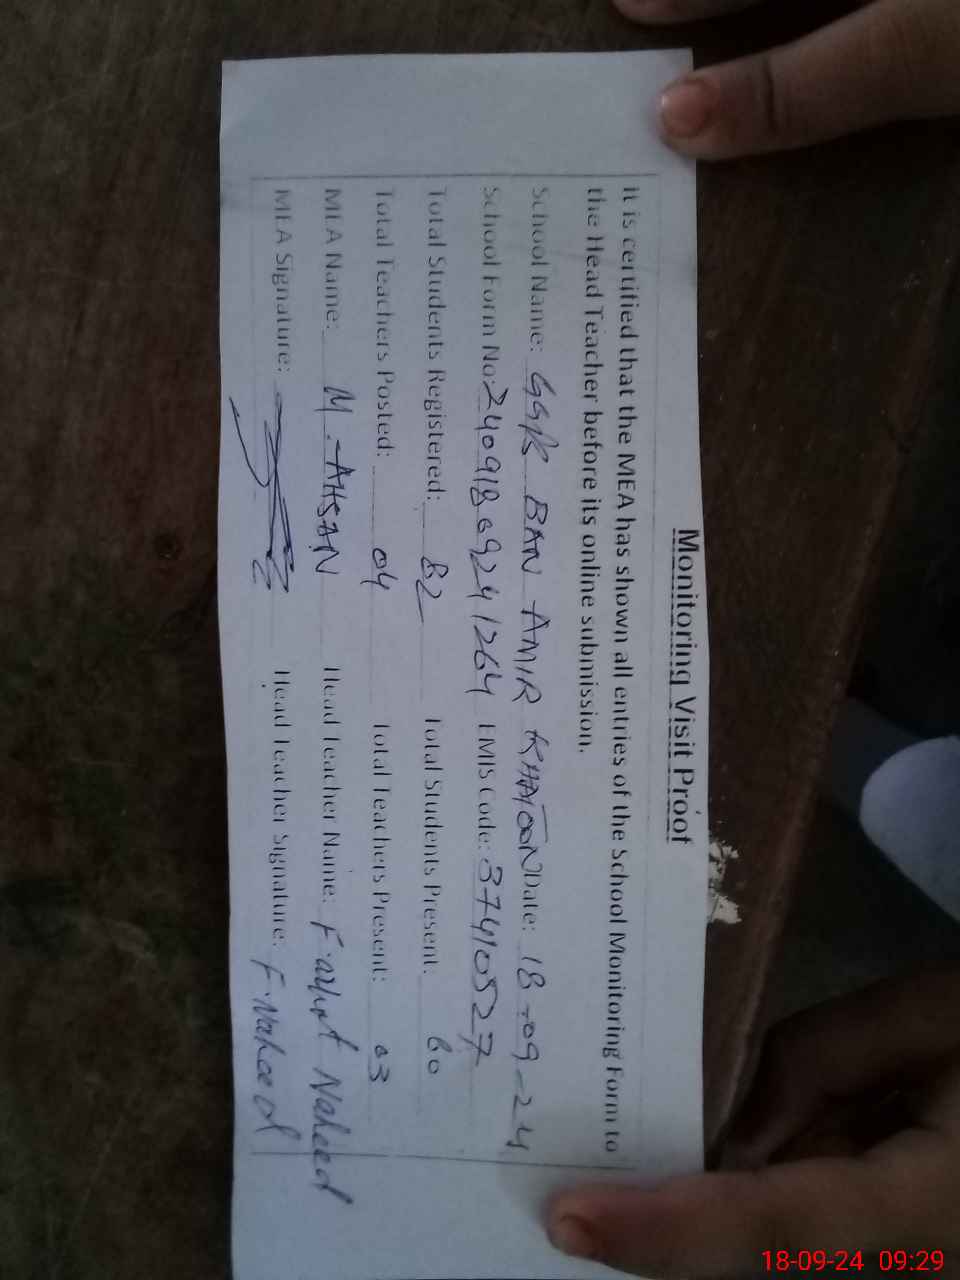 Monitoring Visit Proof
It is certified that the MEA has shown all entries of the School Monitoring Form to
the Head Teacher before its online submission.
School Name: GGPS BAN AMIR KHATOON Date: 18-09-24
School Form No: 24091809241264 EMIS Code: 37410527
Total Students Registered: 82 Total Students Present: 60
Total Teachers Posted: 04 Total Teachers Present: 03
MEA Name: M. AHSAN Head Teacher Name: Farhat Naheed
MEA Signature: Head Teacher Signature: F. Naheed
18-09-24 09:29